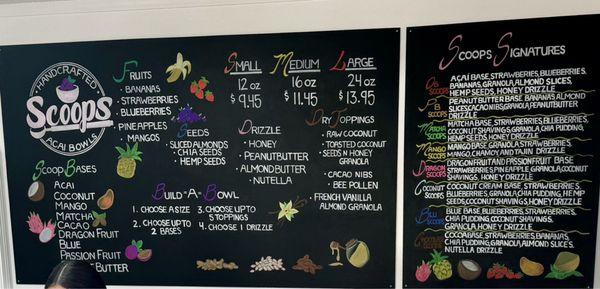 HANDCRAFTED
Scoops
AÇAI BOWLS
FRUITS
- BANANAS
- STRAWBERRIES
- BLUEBERRIES
PINEAPPLES
- MANGOS
SEEDS
SLICED ALMONDS
- CHIA SEEDS
- HEMP SEEDS
SMALL
12 oz
$9.45
MEDIUM
16 oz
$11.45
LARGE
24 oz
$13.95
DRIZZLE
- HONEY
- PEANUT BUTTER
- ALMOND BUTTER
- NUTELLA
DRY TOPPINGS
- RAW COCONUT
- TOASTED COCONUT
- SEEDS N HONEY
GRANOLA
- CACAO NIBS
- BEE POLLEN
- FRENCH VANILLA
ALMOND GRANOLA
SCOOP BASES
AÇAI
COCONUT
MANGO
MATCHA
CACAO
DRAGON FRUIT
BLUE
PASSION FRUIT
BUTTER
BUILD-A-BOWL
1. CHOOSE A SIZE
2. CHOOSE UP TO
2 BASES
3. CHOOSE UP TO
5 TOPPINGS
4. CHOOSE 1 DRIZZLE
SCOOPS SIGNATURES
SCOOPS
AÇAI BASE, STRAWBERRIES, BLUEBERRIES,
BANANAS, GRANOLA, ALMOND SLICES,
HEMP SEEDS, HONEY DRIZZLE
SCOOPS
PEANUT BUTTER BASE, BANANAS, ALMOND
SLICES, CACAO NIBS, GRANOLA, PEANUT BUTTER
DRIZZLE
MATCHA
SCOOPS
MATCHA BASE, STRAWBERRIES, BLUEBERRIES,
COCONUT SHAVINGS, GRANOLA, CHIA PUDDING,
HEMP SEEDS, HONEY DRIZZLE
MANGO
SCOOPS
MANGO BASE, GRANOLA, STRAWBERRIES,
MANGO, CHAMOY AND TAJIN DRIZZLE
DRAGON
SCOOPS
DRAGON FRUIT AND PASSION FRUIT BASE
STRAWBERRIES, PINEAPPLE, GRANOLA, COCONUT
SHAVINGS, HONEY DRIZZLE
COCONUT
SCOOPS
COCONUT CREAM BASE, STRAWBERRIES,
BLUEBERRIES, GRANOLA, CHIA PUDDING, HEMP
SEEDS, COCONUT SHAVINGS, HONEY DRIZZLE
BLUE
SCOOPS
BLUE BASE, BLUEBERRIES, STRAWBERRIES,
CHIA PUDDING, COCONUT SHAVINGS,
GRANOLA, HONEY DRIZZLE
CHOCOLATE
SCOOPS
COCOA BASE, STRAWBERRIES, BANANAS,
CHIA PUDDING, GRANOLA, ALMOND SLICES,
NUTELLA DRIZZLE